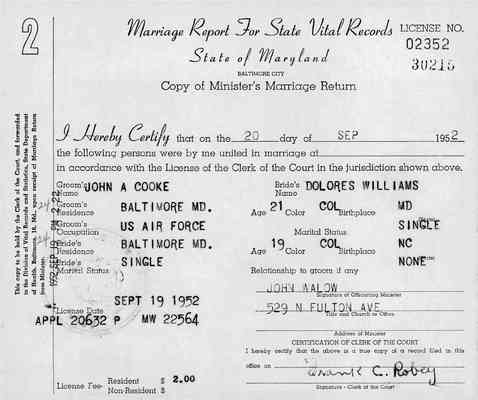 2
Marriage Report For State Vital Records LICENSE NO.
02352
State of Maryland
30215
BALTIMORE CITY
Copy of Minister's Marriage Return
I Hereby Certify that on the 20 day of SEP 1952
the following persons were by me united in marriage at
in accordance with the License of the Clerk of the Court in the jurisdiction shown above.
Groom's Name JOHN A COOKE Bride's Name DOLORES WILLIAMS
Groom's Residence BALTIMORE MD. Age 21 COL Birthplace MD
Groom's Occupation US AIR FORCE Marital Status SINGLE
Bride's Residence BALTIMORE MD. Age 19 COL Birthplace NC
Bride's Marital Status SINGLE NONE
Relationship to groom if any
JOHN WALOW
Signature of Officiating Minister
License Date SEPT 19 1952 529 N FULTON AVE
Title and Church or Office
APPL 20632 P MW 22564
Address of Minister
CERTIFICATION OF CLERK OF THE COURT
I hereby certify that the above is a true copy of a record filed in this
office on
License Fee- Resident $ 2.00
Non-Resident $
Frank C. Robey
Signature - Clerk of the Court
This copy to be held by the Clerk of the Court, and forwarded
to the Division of Vital Records and Statistics, State Department
of Health, Baltimore 18, Md., upon receipt of Marriage Return
from Minister.